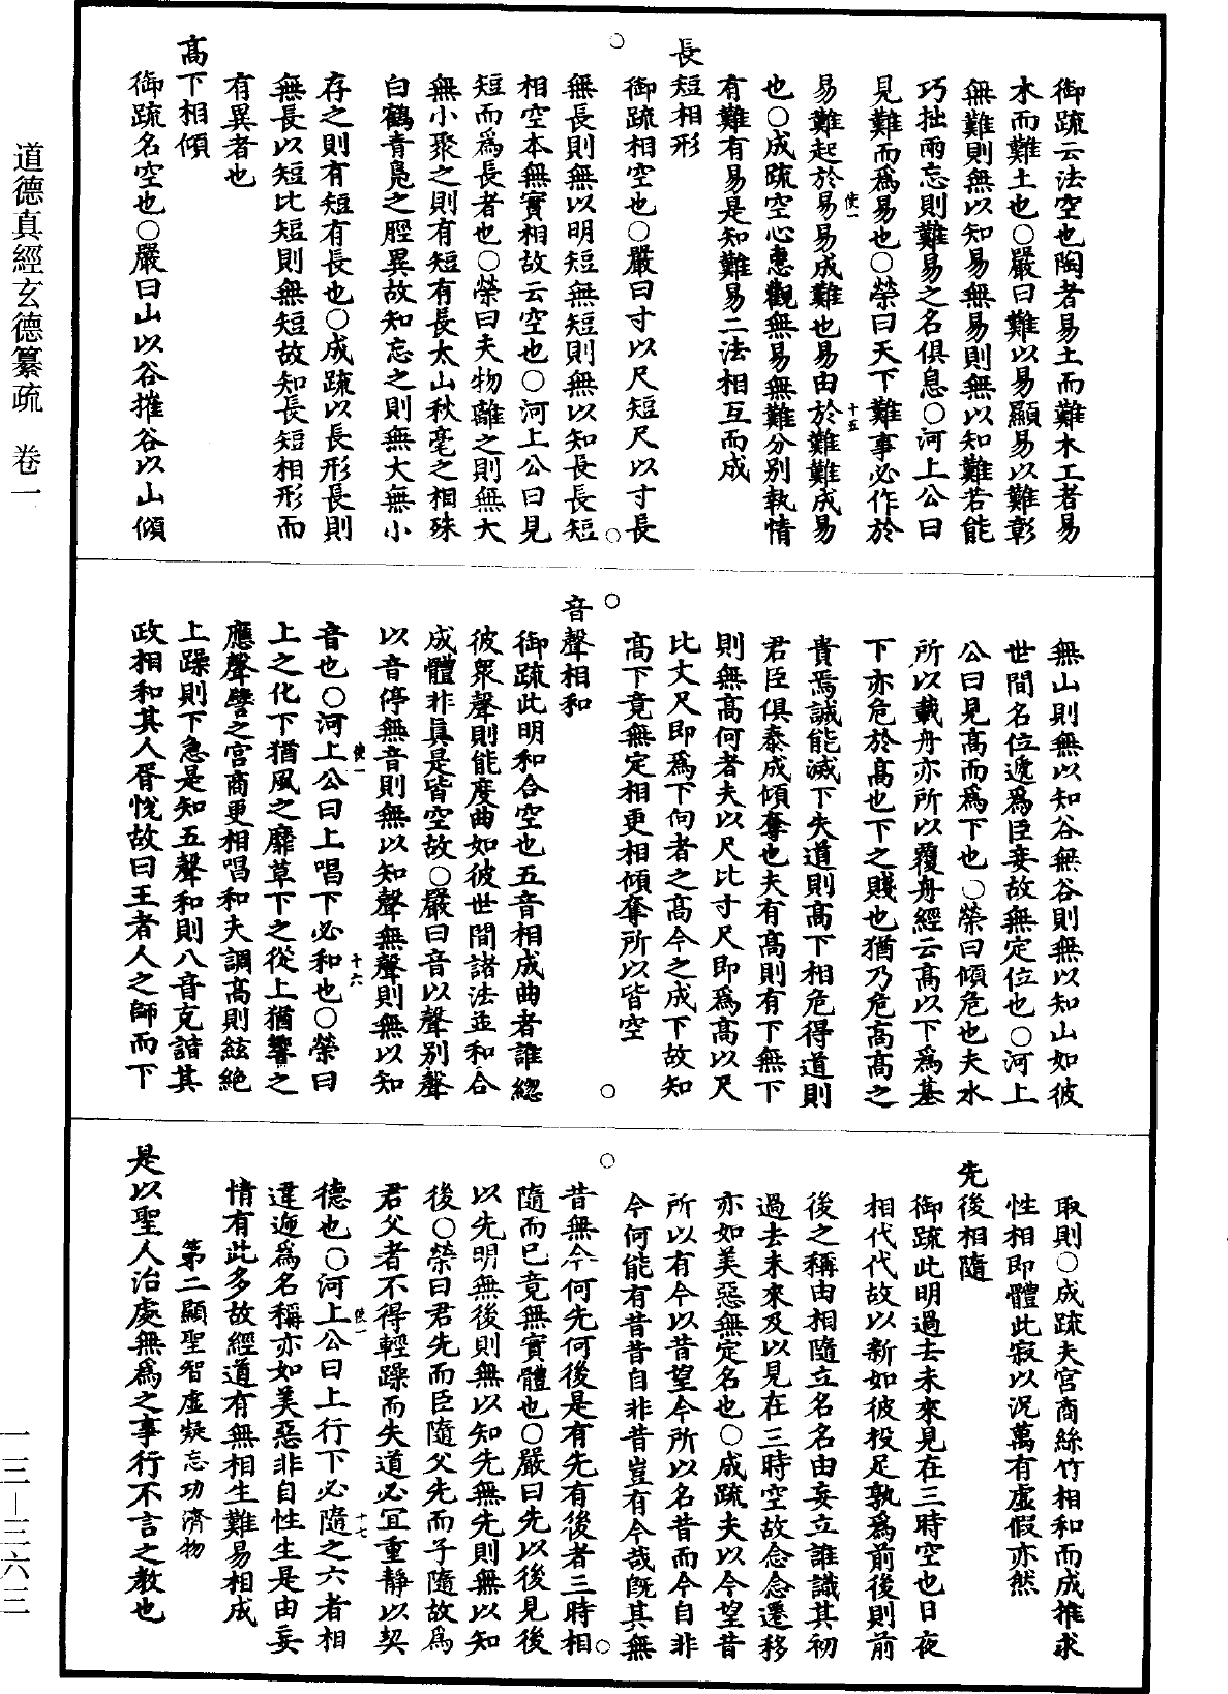 道德真經玄德纂疏　卷一
御疏云法空也陶者易土而難木工者易
木而難土也○嚴曰難以易顯易以難彰
無難則無以知易無易則無以知難若能
巧拙兩忘則難易之名俱息○河上公曰
見難而爲易也○榮曰天下難事必作於
使一　十五
易難起於易易成難也易由於難難成易
也○成疏空心慧觀無易無難分別執情
有難有易是知難易二法相互而成
長短相形
御疏相空也○嚴曰寸以尺短尺以寸長
無長則無以明短無短則無以知長長短
相空本無實相故云空也○河上公曰見
短而爲長者也○榮曰夫物離之則無大
無小聚之則有短有長太山秋毫之相殊
白鶴青鳧之脛異故知忘之則無大無小
存之則有短有長也○成疏以長形長則
無長以短比短則無短故知長短相形而
有異者也
高下相傾
御疏名空也○嚴曰山以谷摧谷以山傾
無山則無以知谷無谷則無以知山如彼
世間名位遞爲臣妾故無定位也○河上
公曰見高而爲下也○榮曰傾危也夫水
所以載舟亦所以覆舟經云高以下爲基
下亦危於高也下之賤也猶乃危高高之
貴焉誠能滅下失道則高下相危得道則
君臣俱泰成傾奪也夫有高則有下無下
則無高何者夫以尺比寸尺即爲高以尺
比丈尺即爲下向者之高今之成下故知
高下竟無定相更相傾奪所以皆空
音聲相和
御疏此明和合空也五音相成曲者誰緫
彼衆聲則能度曲如彼世間諸法並和合
成體非眞是皆空故○嚴曰音以聲別聲
以音停無音則無以知聲無聲則無以知
使一　十六
音也○河上公曰上唱下必和也○榮曰
上之化下猶風之靡草下之從上猶響之
應聲譬之宮商更相唱和夫調高則絃絶
上躁則下急是知五聲和則八音克諧其
政相和其人胥悅故曰王者人之師而下
取則○成疏夫宮商絲竹相和而成推求
性相即體此寂以況萬有虛假亦然
先後相隨
御疏此明過去未來見在三時空也日夜
相代代故以新如彼投足孰爲前後則前
後之稱由相隨立名名由妄立誰識其初
過去未來及以見在三時空故念念遷移
亦如美惡無定名也○成疏夫以今望昔
所以有今以昔望今所以名昔而今自非
今何能有昔昔自非昔豈有今哉旣其無
昔無今何先何後是有先有後者三時相
隨而已竟無實體也○嚴曰先以後見後
以先明無後則無以知先無先則無以知
後○榮曰君先而臣隨父先而子隨故爲
君父者不得輕躁而失道必宜重靜以契
使一　十七
德也○河上公曰上行下必隨之六者相
違遞爲名稱亦如美惡非自性生是由妄
情有此多故經道有無相生難易相成
第二顯聖智虛凝忘功濟物
是以聖人治處無爲之事行不言之教也
一三－三六三